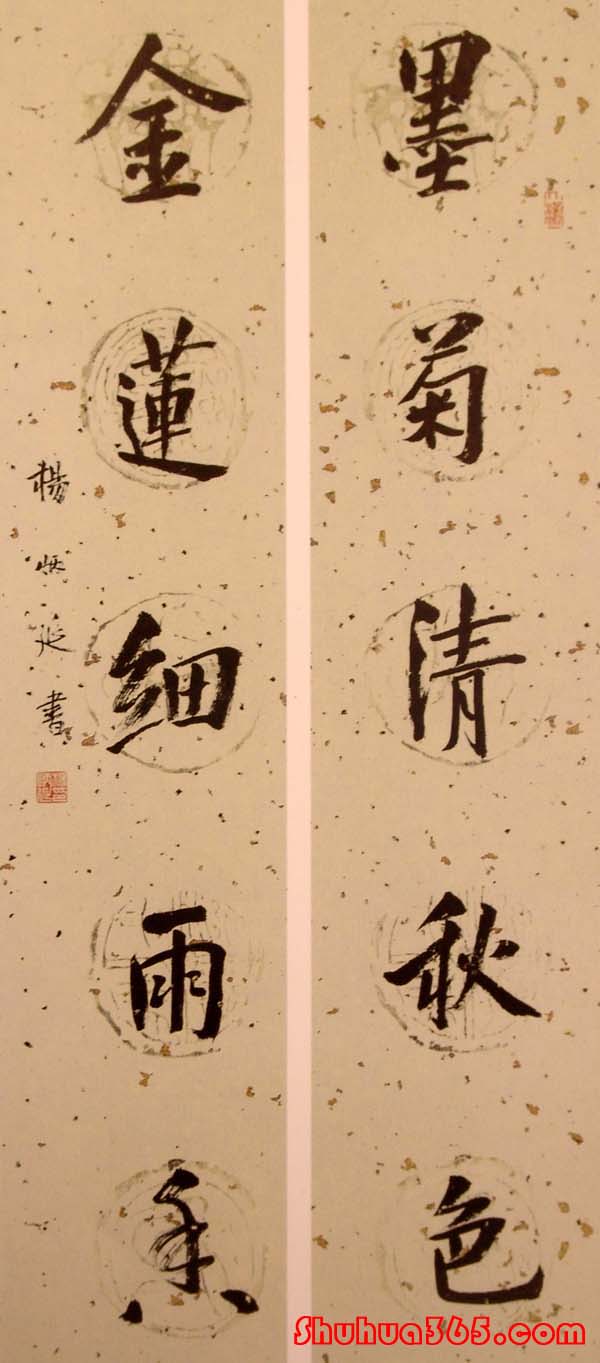 墨菊清秋色
金蓮細雨香
楊炳延書
Shuhua365.com